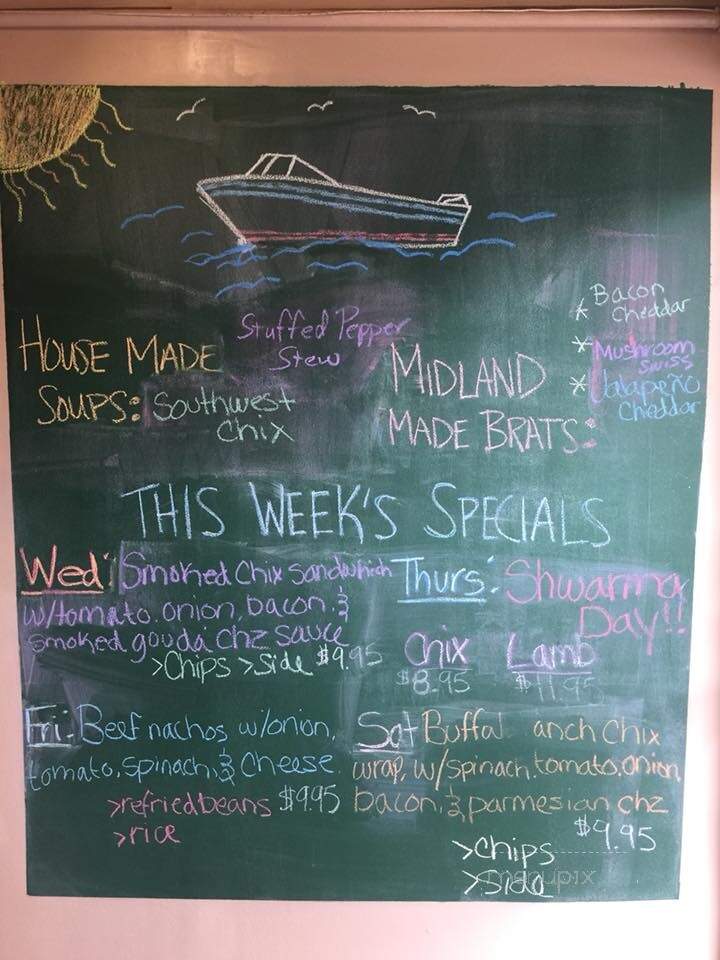 HOUSE MADE
SOUPS:
Stuffed Pepper
Stew
Southwest
Chix
MIDLAND
MADE BRATS:
* Bacon
Cheddar
* Mushroom
Swiss
* Jalapeño
Cheddar
THIS WEEK'S SPECIALS
Wed: Smoked Chix Sandwhich
w/tomato, onion, bacon, &
smoked gouda chz sauce
>Chips >Side $9.95
Thurs: Shwarma
Day!!
Chix Lamb
$8.95 $11.95
Fri: Beef nachos w/onion,
tomato, spinach, & Cheese
>refried beans $9.95
>rice
Sat Buffal anch Chix
wrap, w/spinach, tomato, onion,
bacon, & parmesian chz
$9.95
>Chips
>Side
menupix